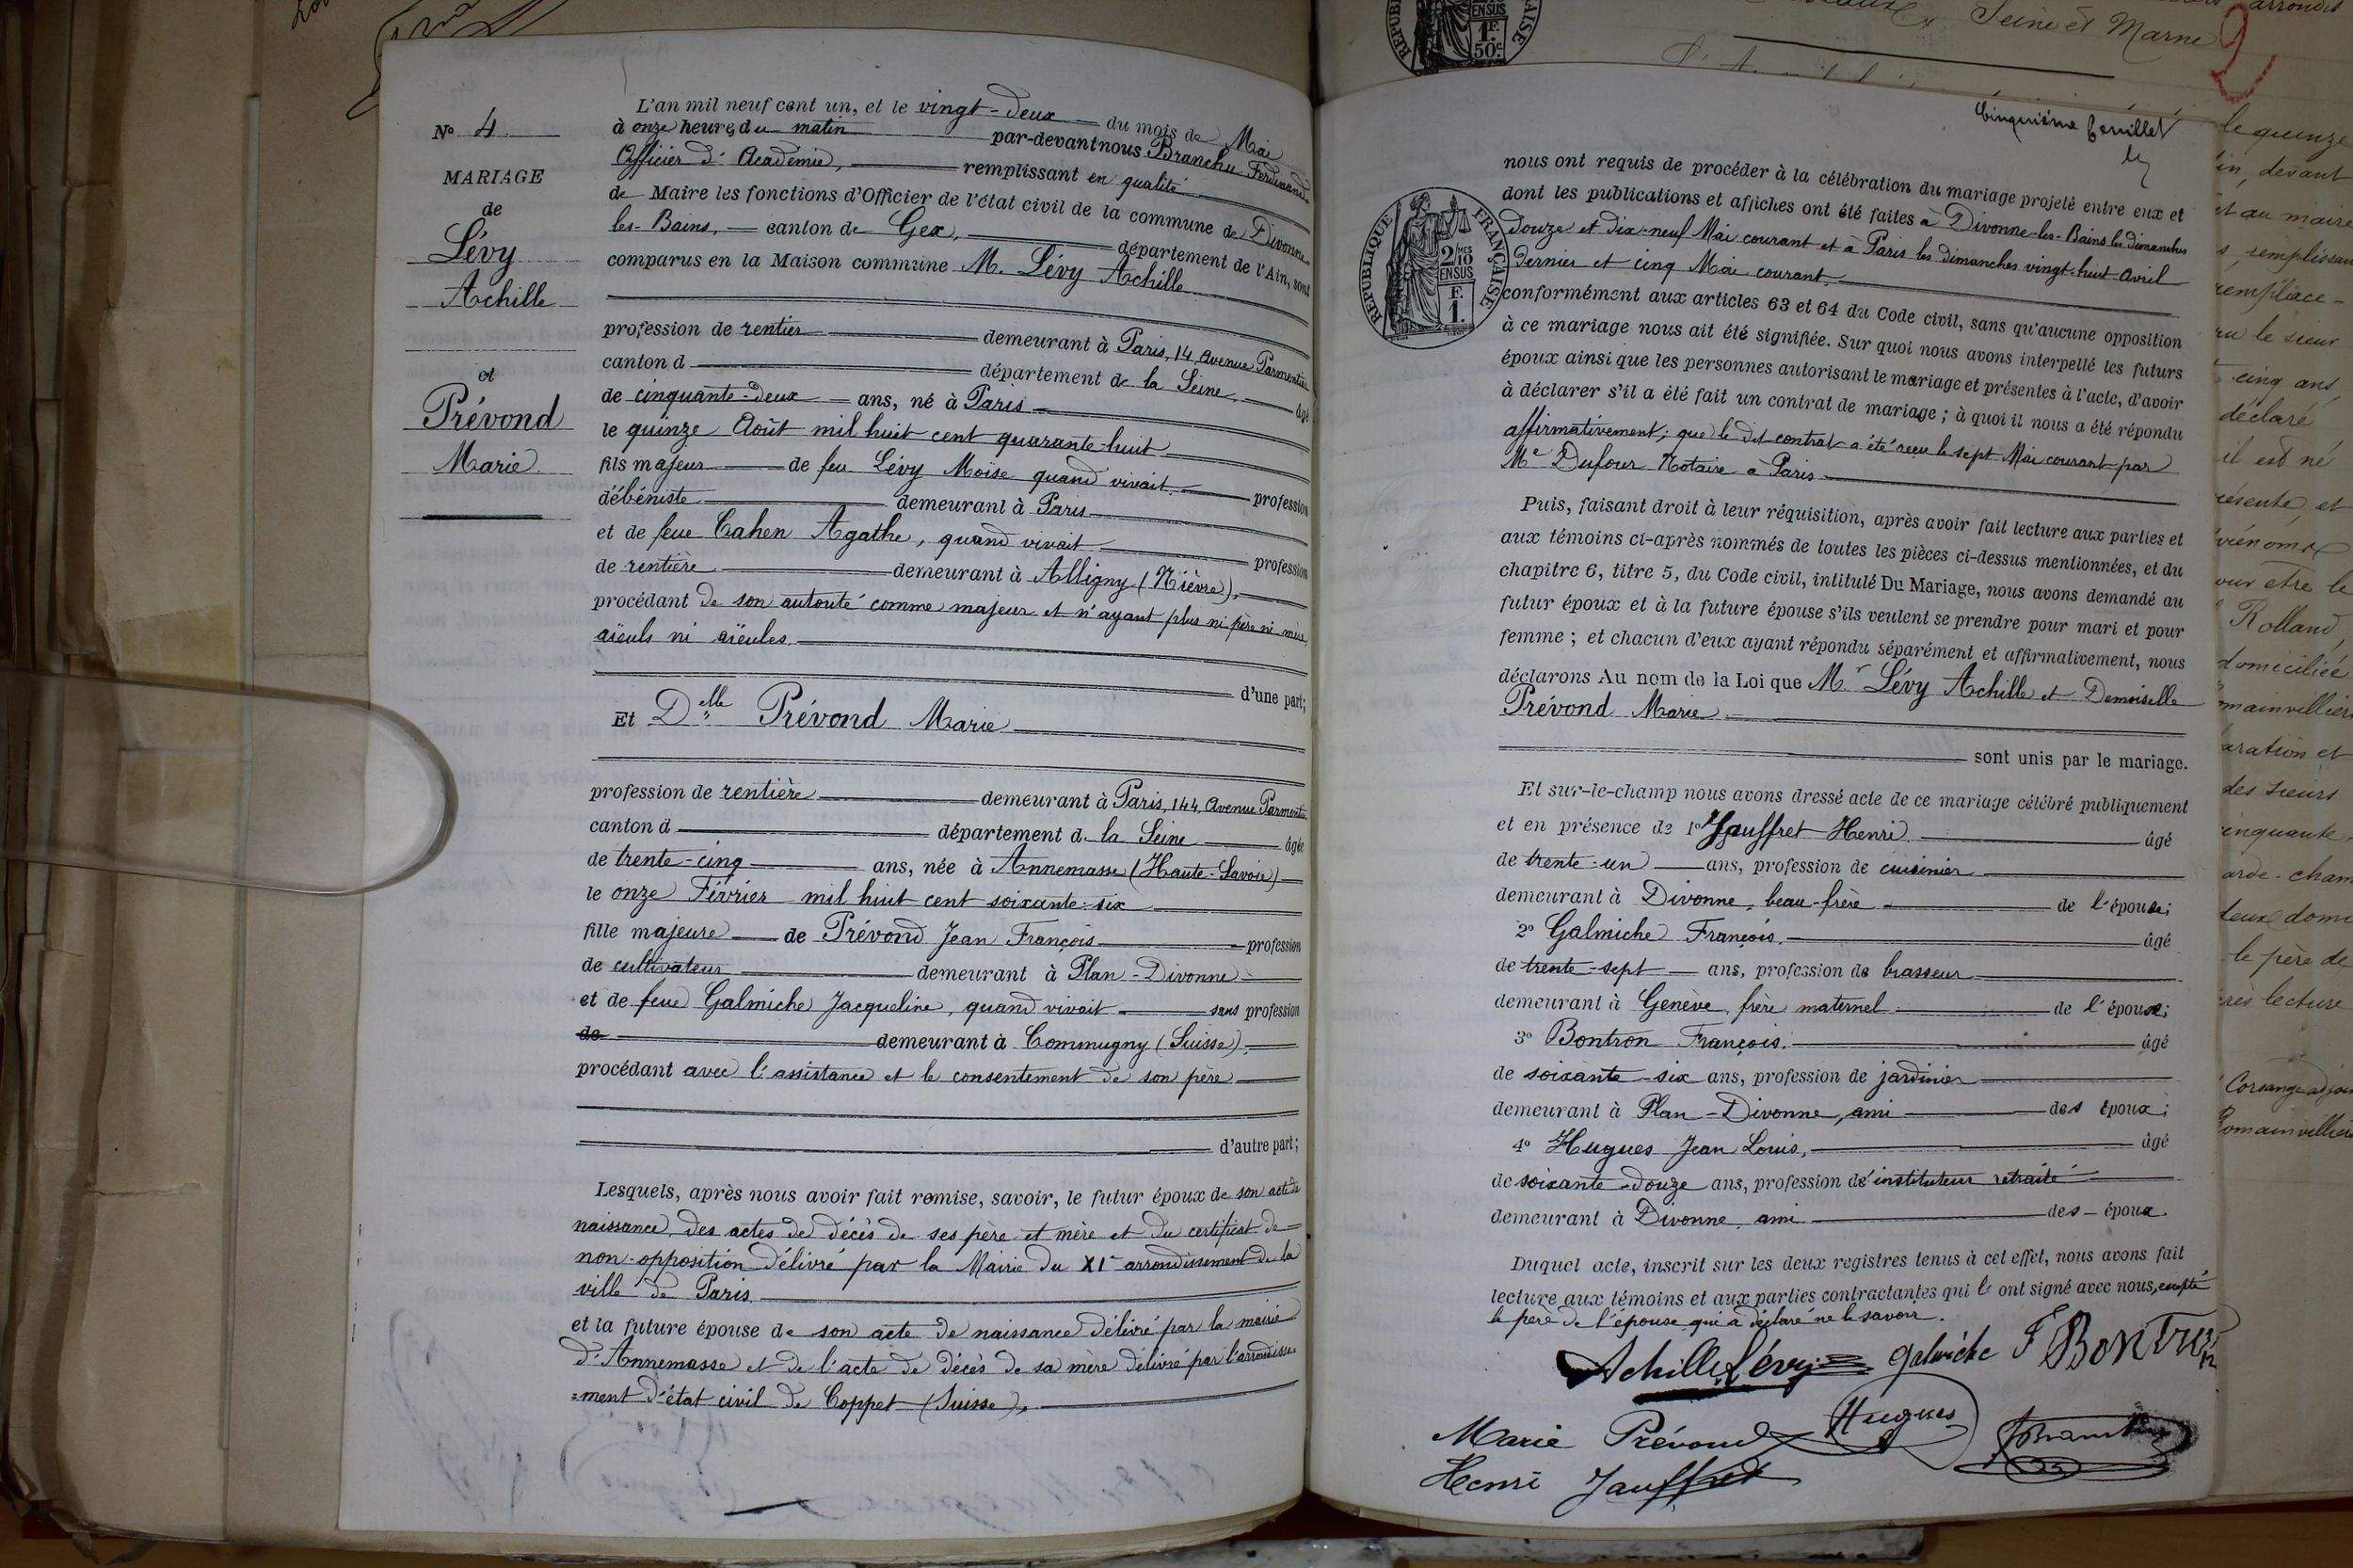 N° 4
MARIAGE
de
Lévy
Achille
et
Prévond
Marie
L'an mil neuf cent un, et le vingt-deux du mois de Mai
à onze heures du matin par-devant nous Branchu Ferdinand
Officier d'Académie, remplissant en qualité
de Maire les fonctions d'Officier de l'état civil de la commune de Divonne-
les-Bains, canton de Gex, département de l'Ain, sont
comparus en la Maison commune M. Lévy Achille
profession de rentier demeurant à Paris, 14 Avenue Parmentier
canton d département de la Seine, âgé
de cinquante-deux ans, né à Paris
le quinze Août mil huit cent quarante-huit
fils majeur de feu Lévy Moïse quand vivait, profession
d'ébéniste demeurant à Paris
et de feue Cahen Agathe, quand vivait profession
de rentière demeurant à Alligny (Nièvre),
procédant de son autorité comme majeur et n'ayant plus ni père ni mère,
aïeuls ni aïeules.
d'une part;
Et Delle Prévond Marie
profession de rentière demeurant à Paris, 144, Avenue Parmentier
canton d département d. la Seine âgée
de trente-cinq ans, née à Annemasse (Haute-Savoie)
le onze Février mil huit cent soixante-six
fille majeure de Prévond Jean François profession
de cultivateur demeurant à Plan-Divonne
et de feue Galmiche Jacqueline, quand vivait sans profession
de demeurant à Commugny (Suisse),
procédant avec l'assistance et le consentement de son père
d'autre part;
Lesquels, après nous avoir fait remise, savoir, le futur époux de son acte de
naissance, des actes de décès de ses père et mère et du certificat de
non-opposition délivré par la Mairie du XIe arrondissement de la
ville de Paris.
et la future épouse de son acte de naissance délivré par la mairie
d'Annemasse et de l'acte de décès de sa mère délivré par l'arrondisse-
=ment d'état civil de Coppet (Suisse),
Seine et Marne
2
Cinquième feuillet
RÉPUBLIQUE FRANÇAISE
2/10MES
EN SUS
F.
1.
nous ont requis de procéder à la célébration du mariage projeté entre eux et
dont les publications et affiches ont été faites à Divonne-les-Bains les dimanches
douze et dix-neuf Mai courant et à Paris les dimanches vingt-huit Avril
dernier et cinq Mai courant,
conformément aux articles 63 et 64 du Code civil, sans qu'aucune opposition
à ce mariage nous ait été signifiée. Sur quoi nous avons interpellé les futurs
époux ainsi que les personnes autorisant le mariage et présentes à l'acte, d'avoir
à déclarer s'il a été fait un contrat de mariage ; à quoi il nous a été répondu
affirmativement; que le dit contrat a été reçu le sept Mai courant par
Me Dufour Notaire à Paris
Puis, faisant droit à leur réquisition, après avoir fait lecture aux parties et
aux témoins ci-après nommés de toutes les pièces ci-dessus mentionnées, et du
chapitre 6, titre 5, du Code civil, intitulé Du Mariage, nous avons demandé au
futur époux et à la future épouse s'ils veulent se prendre pour mari et pour
femme ; et chacun d'eux ayant répondu séparément et affirmativement, nous
déclarons Au nom de la Loi que Mr Lévy Achille et Demoiselle
Prévond Marie
sont unis par le mariage.
Et sur-le-champ nous avons dressé acte de ce mariage célébré publiquement
et en présence de 1° Jauffret Henri âgé
de trente-un ans, profession de cuisinier
demeurant à Divonne, beau-frère de l'épouse;
2° Galmiche François, âgé
de trente-sept ans, profession de brasseur
demeurant à Genève, frère maternel de l'épouse;
3° Bontron François. âgé
de soixante-six ans, profession de jardinier
demeurant à Plan-Divonne, ami des époux;
4° Hugues Jean Louis, âgé
de soixante-douze ans, profession d'instituteur retraité
demeurant à Divonne, ami des époux.
Duquel acte, inscrit sur les deux registres tenus à cet effet, nous avons fait
lecture aux témoins et aux parties contractantes qui l' ont signé avec nous, excepté
le père de l'épouse qui a déclaré ne le savoir.
Achille Lévy Galmiche F BONTRON
Marie Prévond Hugues Branchu
Henri Jauffret
le quinze
devant
et au maire
cinq ans
déclaré
il est né
Rolland
domiciliée
des sieurs
le père de
lecture